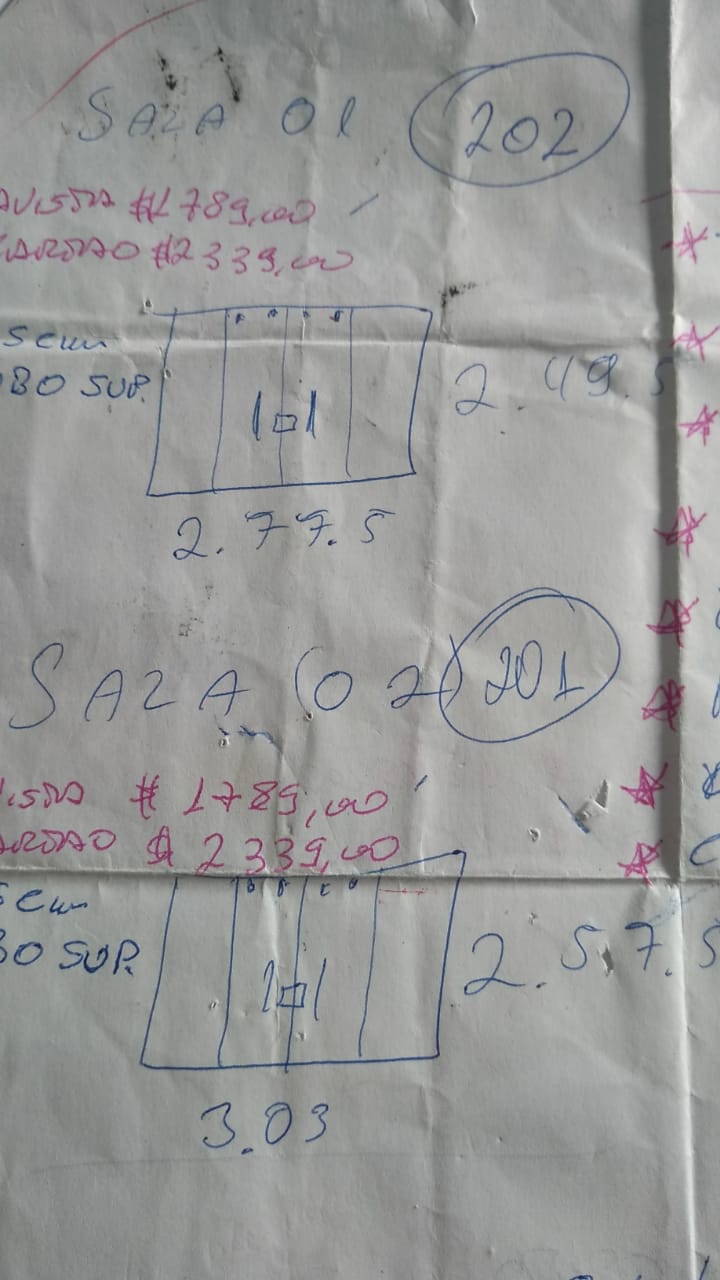 SALA 01 202
AVISTA $1789,00
CARTAO $2339,00
5cm
080 SUP.
2.49.5
2.77.5
SALA (02) 201
VISTA $ 1789,00
ARTAO $ 2339,00
5cm
80 SUP.
2.57.5
3.03